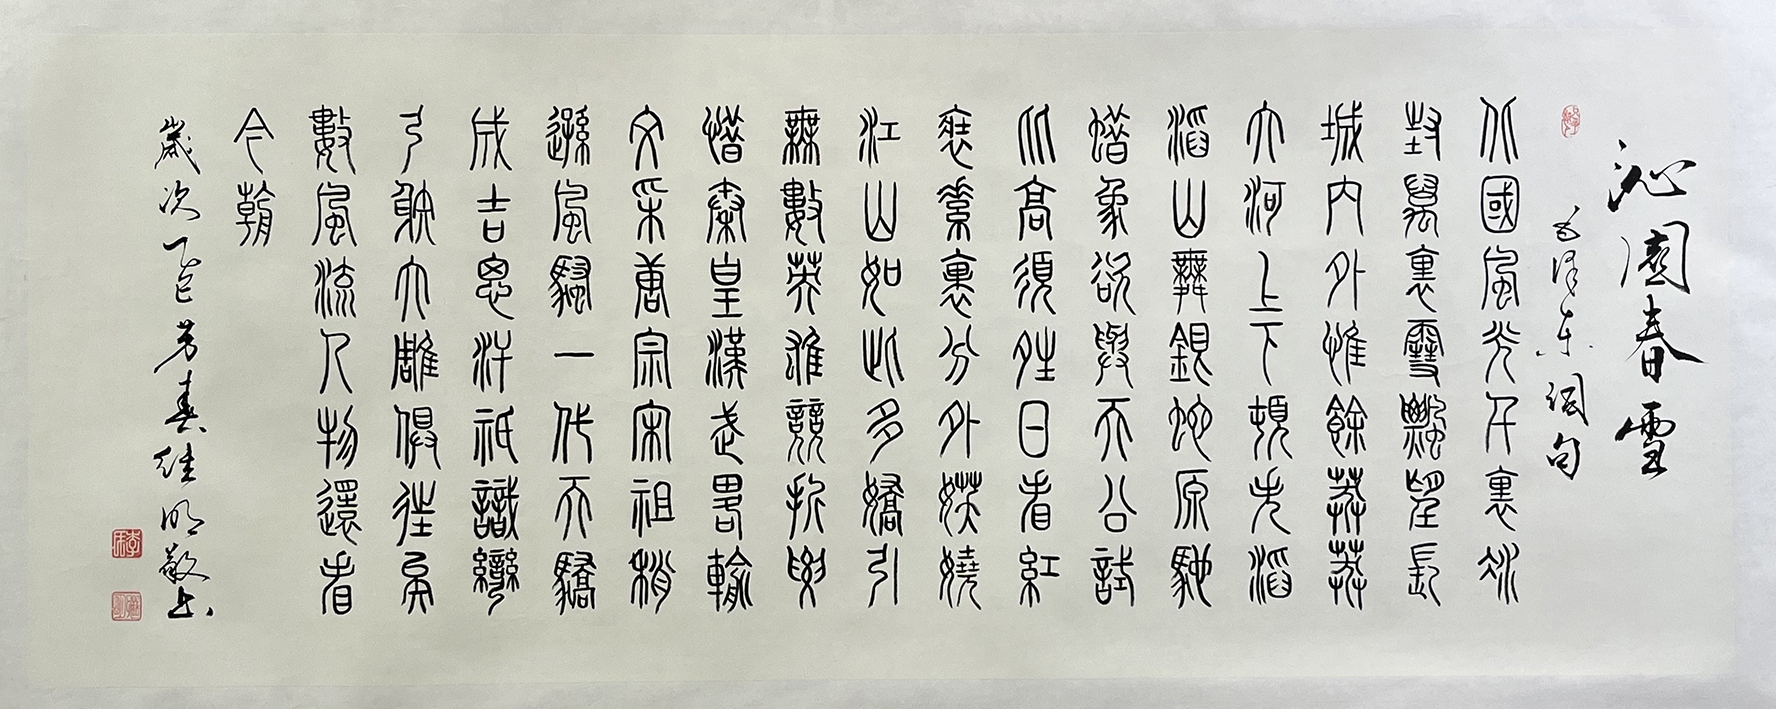 沁園春雪
毛澤東詞句
北國風光千裏冰
封萬裏雪飄望長
城内外惟餘莽莽
大河上下頓失滔
滔山舞銀蛇原馳
蜡象欲與天公試
比高須晴日看紅
裝素裹分外妖嬈
江山如此多嬌引
無數英雄競折腰
惜秦皇漢武略輸
文采唐宗宋祖稍
遜風騷一代天驕
成吉思汗祗識彎
弓射大雕俱往矣
數風流人物還看
今朝
歲次乙巳芳春明敬書